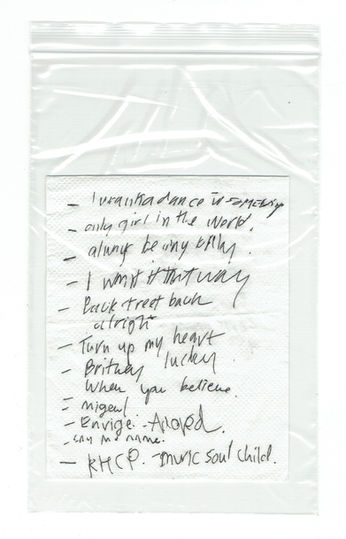 - I wanna dance w somebody
- only girl in the world.
- always be my baby.
- I want it that way
- Back street back
alright
- Turn up my heart
- Britney lucky
When you believe.
- migeul
- Envige. -
- say my name.
- RHCP. - music soul child.